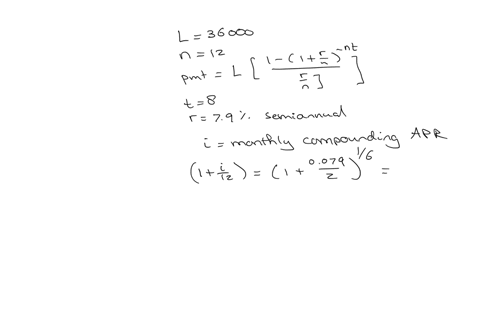 L = 36000
n = 12
pmt = L [ (1 - (1 + r/n)^-nt) / (r/n) ]
t = 8
r = 7.9 % semiannual
i = monthly compounding APR
(1 + i/12) = (1 + 0.079/2)^1/6 =